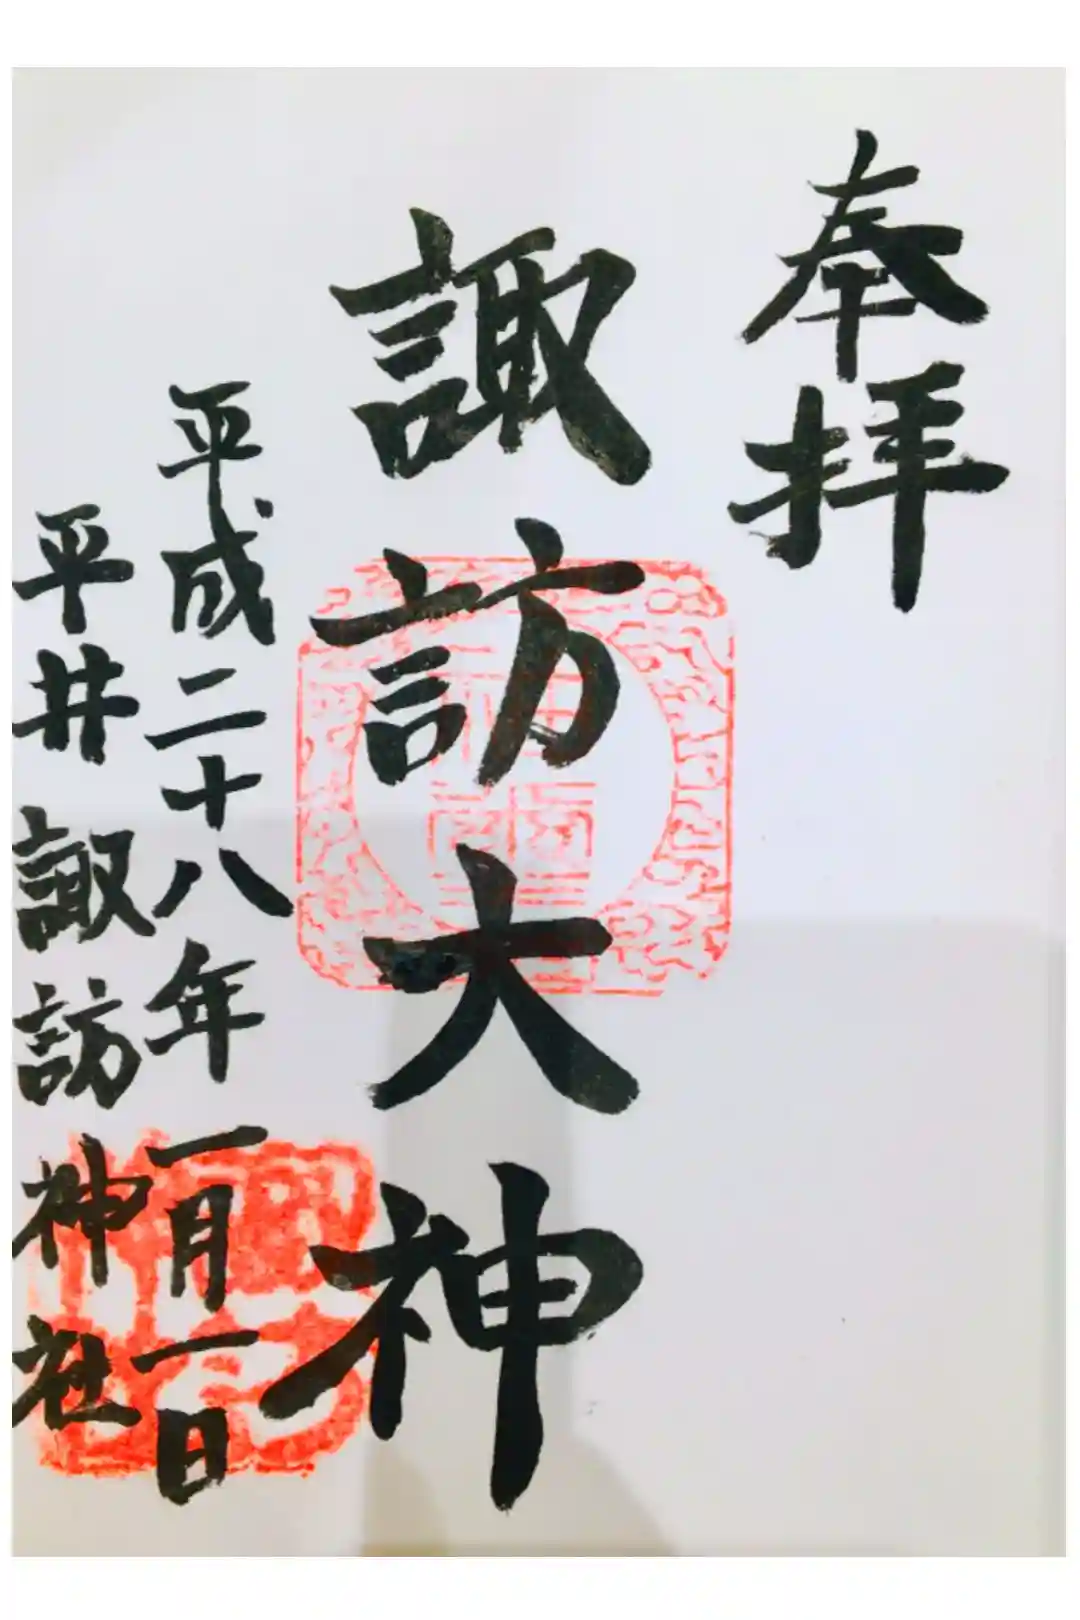 奉拝
諏訪大神
平成二十八年一月一日
平井諏訪神社